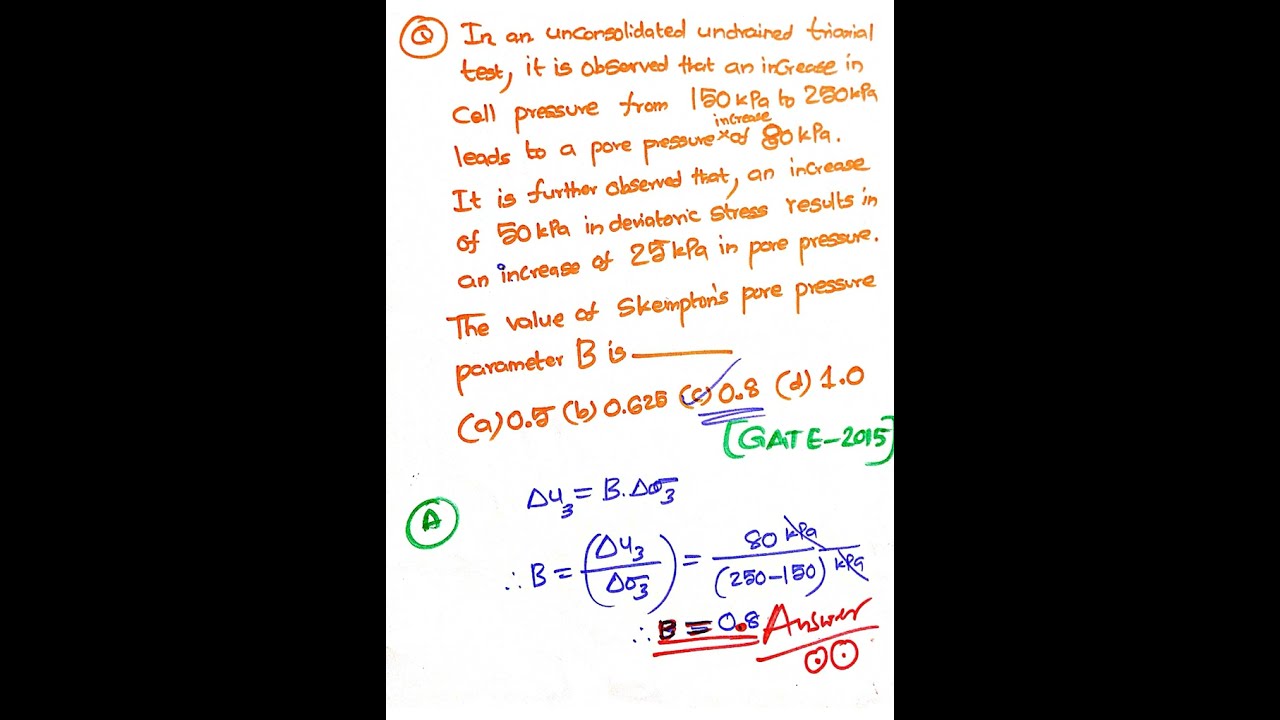 Q In an unconsolidated undrained triaxial
test, it is observed that an increase in
Cell pressure from 150 kPa to 250 kPa
increase
leads to a pore pressure × of 80 kPa.
It is further observed that, an increase
of 50 kPa in deviatoric stress results in
an increase of 25 kPa in pore pressure.
The value of Skempton's pore pressure
parameter B is ———
(a) 0.5 (b) 0.625 (c) 0.8 (d) 1.0
[GATE-2015]
A Δu₃ = B.Δσ₃
∴ B = (Δu₃/Δσ₃) = 80 kPa/(250-150) kPa
∴ B = 0.8 Answer